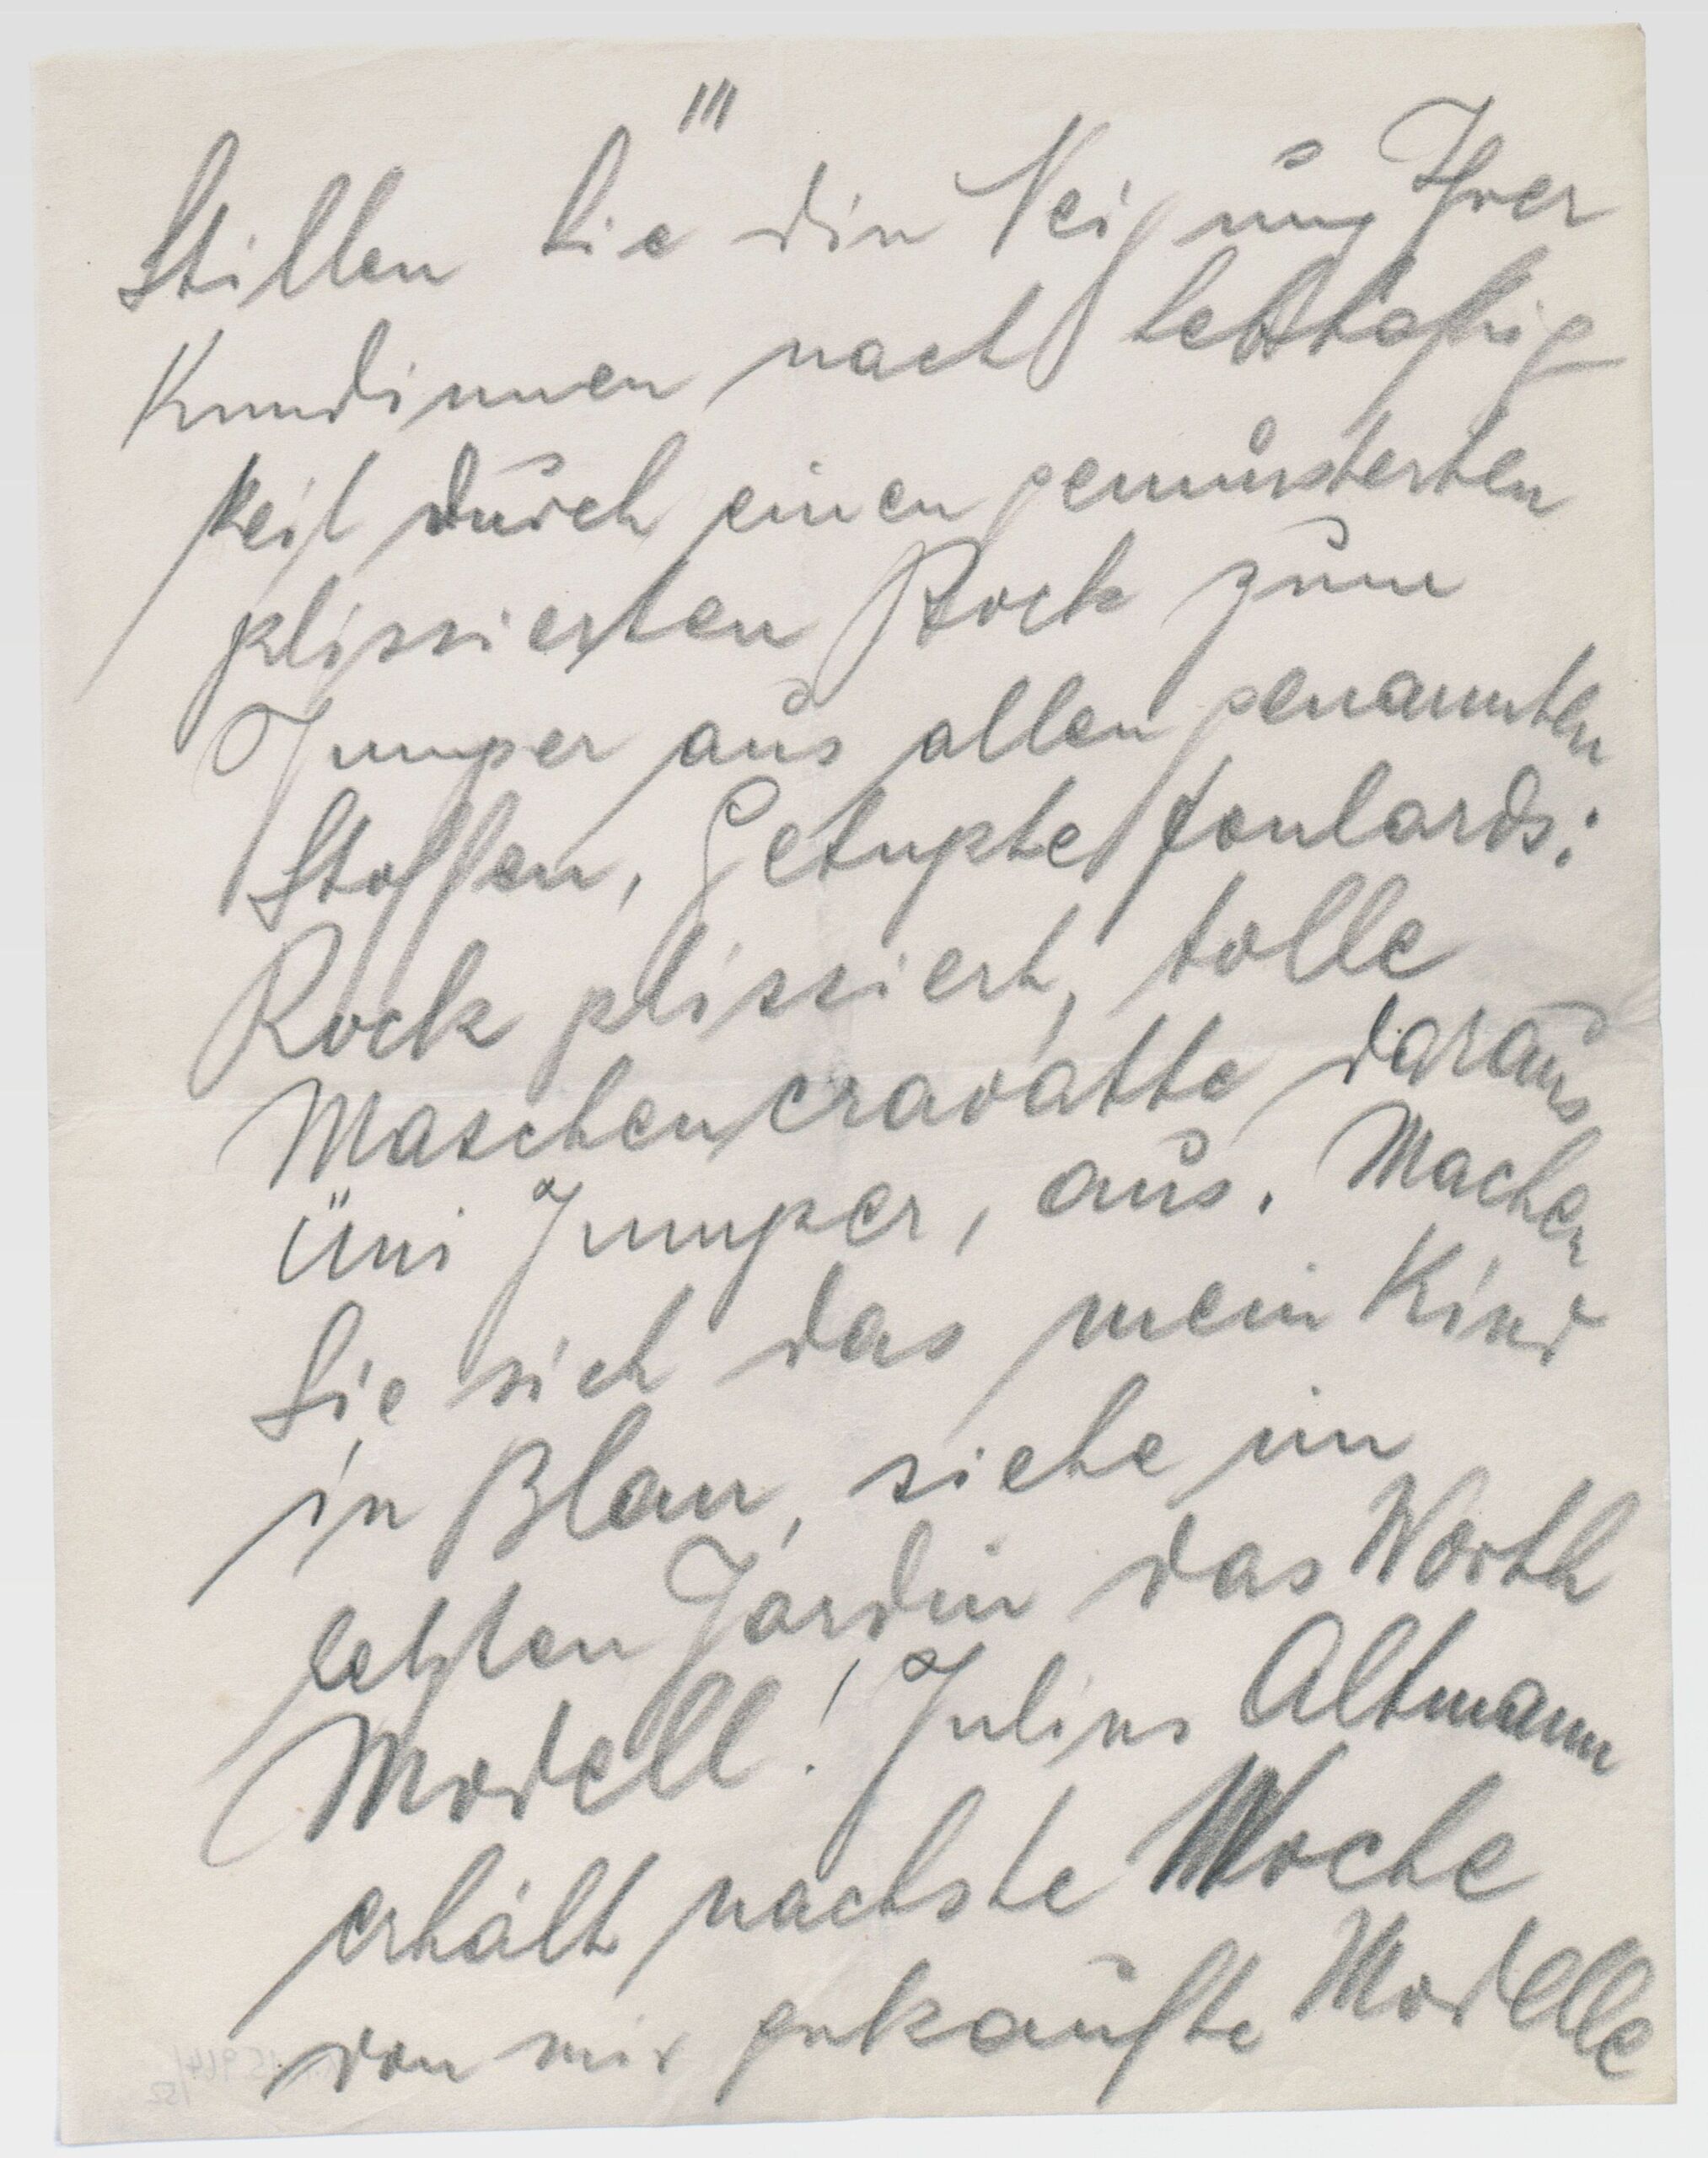 III
Stillen Sie die Neigung Ihrer
Kundinnen nach lebhaftig
keit durch einen gemusterten
plissierten Rock zum
Jumper aus allen genannten
Stoffen, Getupfte Foulards:
Rock plissiert, tolle
Maschencravatte daraus
Üni Jumper, aus. Machen
Sie sich das mein Kind
in Blau, siehe im
letzten Jardin das Worth
Modell! Julius Altmann
erhält nächste Woche
von mir gekaufte Modelle